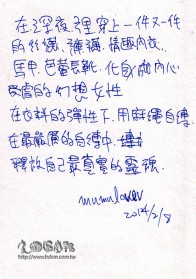 在深夜裡穿上一件又一件
的絲襪、褲襪、情趣內衣、
馬甲、芭蕾長靴,化身成內心
深層的幻想女性
在衣料的彈性下,用麻繩自縛
在最嚴厲的自縛中
釋放自己最真實的靈魂。
mumulover
2014/2/8
www.bdsm.com.tw